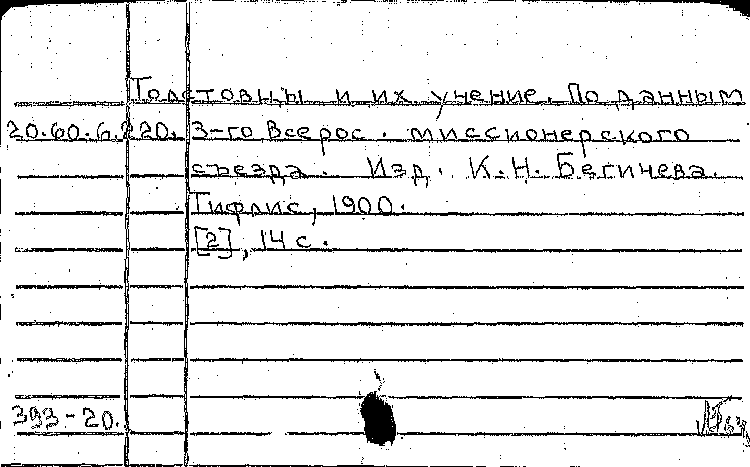 Толстовцы и их учение. По данным
20.60.6.220. 3-го Всерос. миссионерского
съезда. Изд. К.Н. Бегичева.
Тифлис, 1900.
[2], 14 с.
393-20.